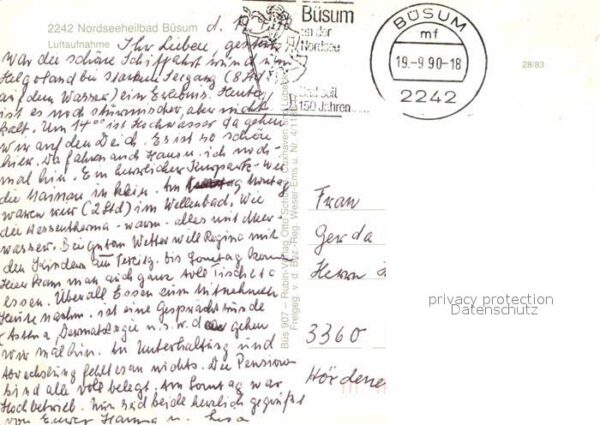 2242 Nordseeheilbad Büsum
Luftaufnahme
d.
Ihr Lieben, gestern
war die schöne Schiffahrt rund um
Helgoland bei starkem Seegang (8
auf dem Wasser) ein Erlebnis. Heute
ist es noch stürmischer, aber nicht
kalt. Um 14°° ist Hochwasser da gehen
wir auf den Deich. Es ist so schön
hier. Da fahren auch Hans u. ich noch-
mal hin. Ein herrlicher Kurpark - wie
die Mainau in klein. Am Montag
waren wir (2 Std) im Wellenbad. Wie
die Hessentherme - warm - alles mit Meer-
wasser. Bei gutem Wetter will Regina mit
den Kindern am bis Sonntag kom.
Hier kann man auch ganz toll Fisch etc
essen. Überall Essen zum Mitnehmen
Heute nachm. ist eine Gesprächsrunde
(Astma, Dermatologie u.s.w. da gehen
wir mal hin. An Unterhaltung und
Abwechslung fehlt es an nichts. Die Pensionen
sind alle voll belegt. Am Sonntag war
Hochbetrieb. Nun seid beide herzlich gegrüßt
von Eurer Hanna u.
Büsum
an der
Nordsee
Bad seit
150 Jahren
BÜSUM
mf
19.-9.90-18
2242
28/83
Büs 907 - Rubin-Verlag, Otto
Freigeg. v. d. Bez.-Reg. Weser-Ems u. Nr.
Frau
Gerda
Herrn
3360
Hördene
privacy protection
Datenschutz